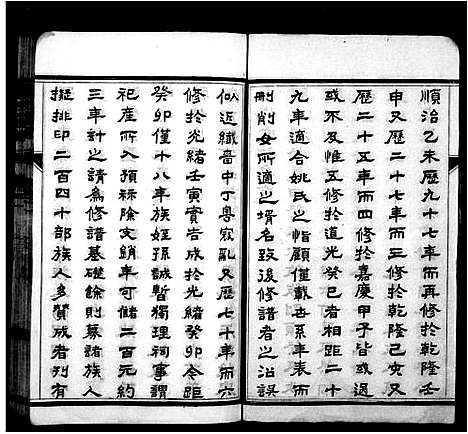 順治乙未歷九十七年而再修於乾隆壬
申又歷二十七年而三修於乾隆己亥又
歷二十五年而四修於嘉慶甲子皆或過
或不及惟五修於道光癸巳者相距二十
九年適合姚氏之恉顧僅載世系年表而
刪削女所適之壻名致後修譜者之沿誤
似近纖嗇中丁粵寇亂又歷七十年而六
修於光緒壬寅實告成於光緒癸卯今距
癸卯僅十八年族姪孫誠暫獨理祠事謂
祀產所入預祘除支銷年可儲二百元約
三年計之請為修譜基礎餘則募諸族人
擬排印二百四十部族人多贊成者刊有